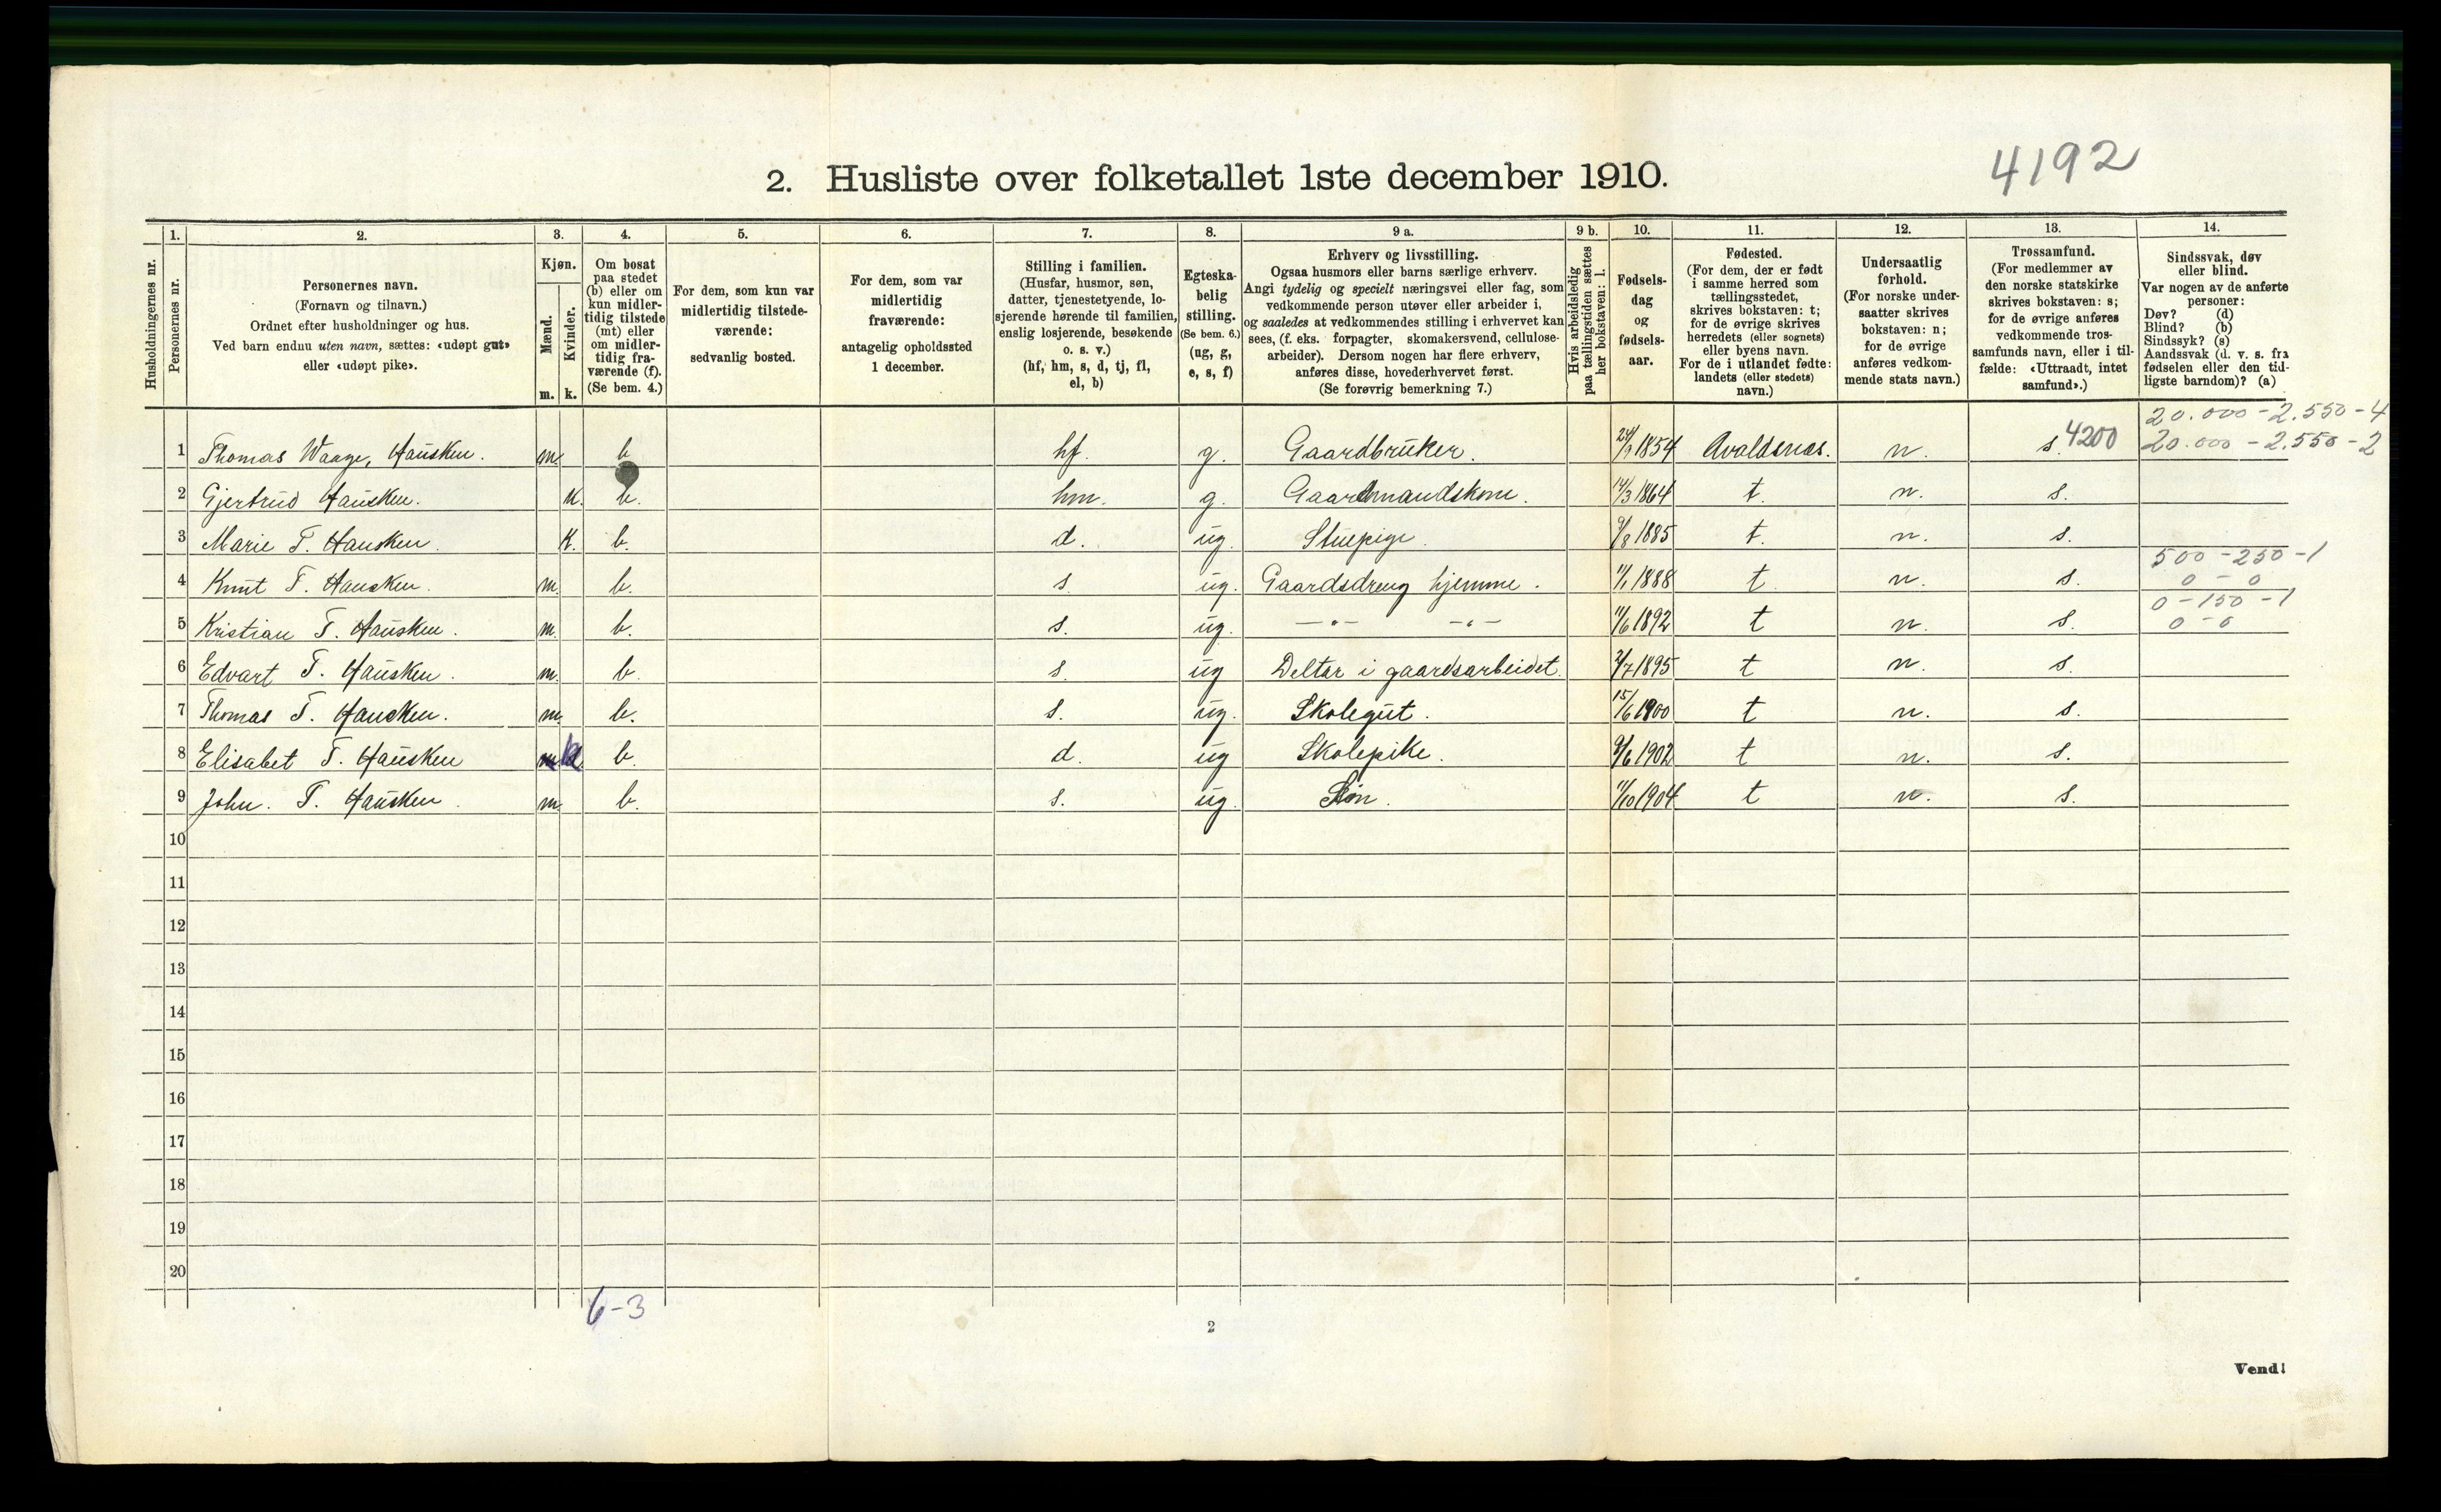 4192
2. Husliste over folketallet 1ste december 1910.
1. 2. 3. 4. 5. 6. 7. 8. 9 a. 9 b. 10. 11. 12. 13. 14.
Husholdningernes nr.
Personernes nr.
Personernes navn.
(Fornavn og tilnavn.)
Ordnet efter husholdninger og hus.
Ved barn endnu uten navn, sættes: «udøpt gut»
eller «udøpt pike».
Kjøn.
Mænd.
Kvinder.
m. k.
Om bosat
paa stedet
(b) eller om
kun midler-
tidig tilstede
(mt) eller
om midler-
tidig fra-
værende (f).
(Se bem. 4.)
For dem, som kun var
midlertidig tilstede-
værende:
sedvanlig bosted.
For dem, som var
midlertidig
fraværende:
antagelig opholdssted
1 december.
Stilling i familien.
(Husfar, husmor, søn,
datter, tjenestetyende, lo-
sjerende hørende til familien,
enslig losjerende, besøkende
o. s. v.)
(hf, hm, s, d, tj, fl,
el, b)
Egteska-
belig
stilling.
(Se bem. 6.)
(ug, g,
e, s, f)
Erhverv og livsstilling.
Ogsaa husmors eller barns særlige erhverv.
Angi tydelig og specielt næringsvei eller fag, som
vedkommende person utøver eller arbeider i,
og saaledes at vedkommendes stilling i erhvervet kan
sees, (f. eks. forpagter, skomakersvend, cellulose-
arbeider). Dersom nogen har flere erhverv,
anføres disse, hovederhvervet først.
(Se forøvrig bemerkning 7.)
Hvis arbeidsledig
paa tællingstiden sættes
her bokstaven: l.
Fødsels-
dag
og
fødsels-
aar.
Fødested.
(For dem, der er født
i samme herred som
tællingsstedet,
skrives bokstaven: t;
for de øvrige skrives
herredets (eller sognets)
eller byens navn.
For de i utlandet fødte:
landets (eller stedets)
navn.)
Undersaatlig
forhold.
(For norske under-
saatter skrives
bokstaven: n;
for de øvrige
anføres vedkom-
mende stats navn.)
Trossamfund.
(For medlemmer av
den norske statskirke
skrives bokstaven: s;
for de øvrige anføres
vedkommende tros-
samfunds navn, eller i til-
fælde: «Uttraadt, intet
samfund».)
Sindssvak, døv
eller blind.
Var nogen av de anførte
personer:
Døv? (d)
Blind? (b)
Sindssyk? (s)
Aandssvak (d. v. s. fra
fødselen eller den tid-
ligste barndom)? (a)
20.000 - 2.550 - 4
1 Thomas Waage, Hausken. m. b hf. g. Gaardbruker. 24/9 1854 Avaldsnes. n. s. 4200 20.000 - 2.550 - 2
2 Gjertrud Hausken. k. b. hm. g. Gaardmandskone. 14/3 1864 t. n. s.
3 Marie T. Hausken. k. b. d. ug. Stuepige. 9/8 1885 t. n. s.
500 - 250 - 1
4 Knut T. Hausken. m. b. s. ug. Gaardsdreng hjemme. 11/1 1888 t n. s. 0 - 0
0 - 150 - 1
5 Kristian T. Hausken. m. b. s. ug. —"— —"— 11/6 1892 t n. s. 0 - 0
6 Edvart T. Hausken. m. b. s. ug Deltar i gaardsarbeidet. 2/7 1895 t n. s.
7 Thomas T. Hausken. m. b. s. ug. Skolegut. 15/6 1900 t n. s.
8 Elisabet T. Hausken m k b. d. ug Skolepike. 9/6 1902 t n. s.
9 John. T. Hausken. m. b. s. ug. Søn. 11/10 1904 t n. s.
10
11
12
13
14
15
16
17
18
19
20
6-3
2
Vend!